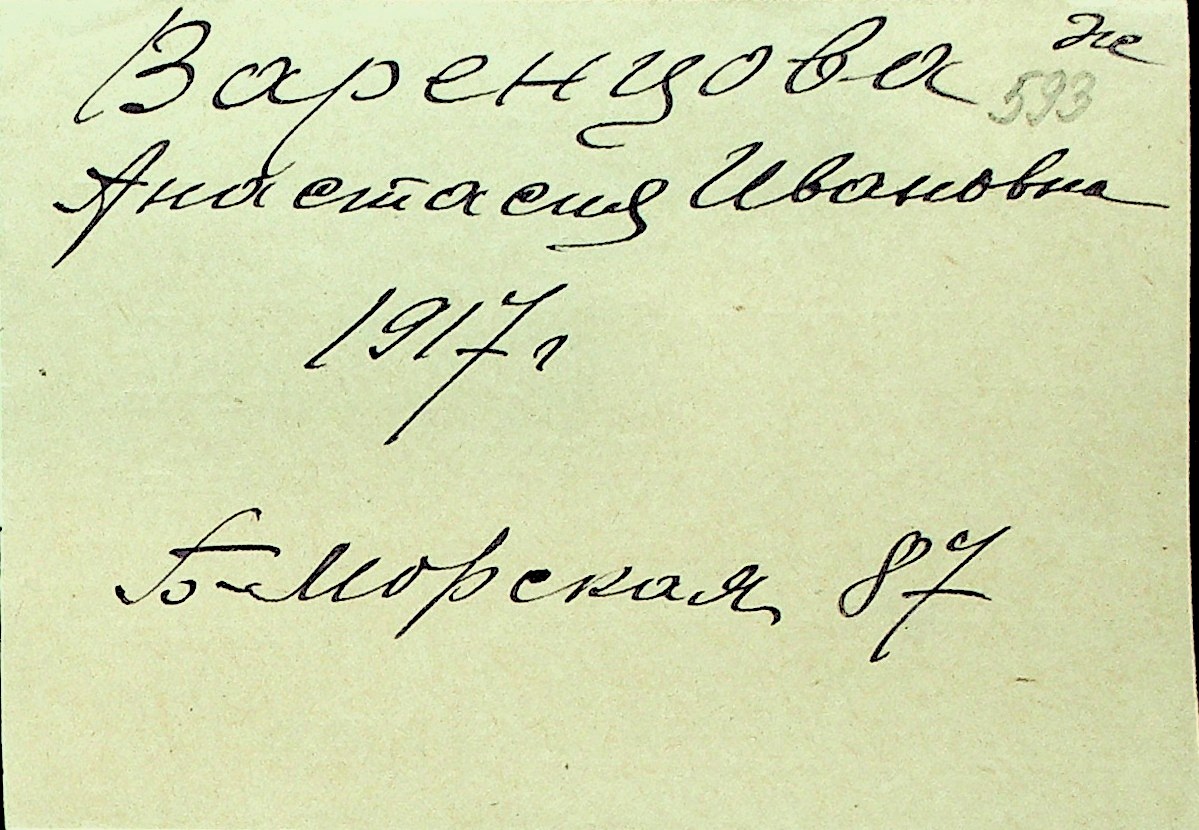 Варенцова же
593
Анастасия Ивановна
1917г
Б-Морская 87